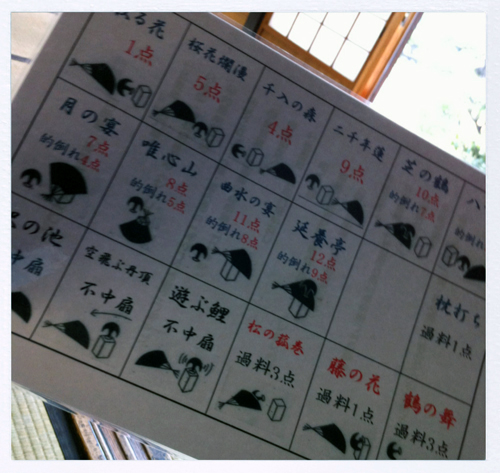 る花
1点
桜花爛漫
5点
千入の森
4点
二千年蓮
9点
芝の鶴
10点
的倒れ7点
八
的倒れ
月の宴
7点
的倒れ4点
唯心山
8点
的倒れ5点
曲水の宴
11点
的倒れ8点
延養亭
12点
的倒れ9点
枕打ち
過料1点
の池
中扇
空飛ぶ丹頂
不中扇
遊ぶ鯉
不中扇
松の菰巻
過料3点
藤の花
過料1点
鶴の舞
過料3点